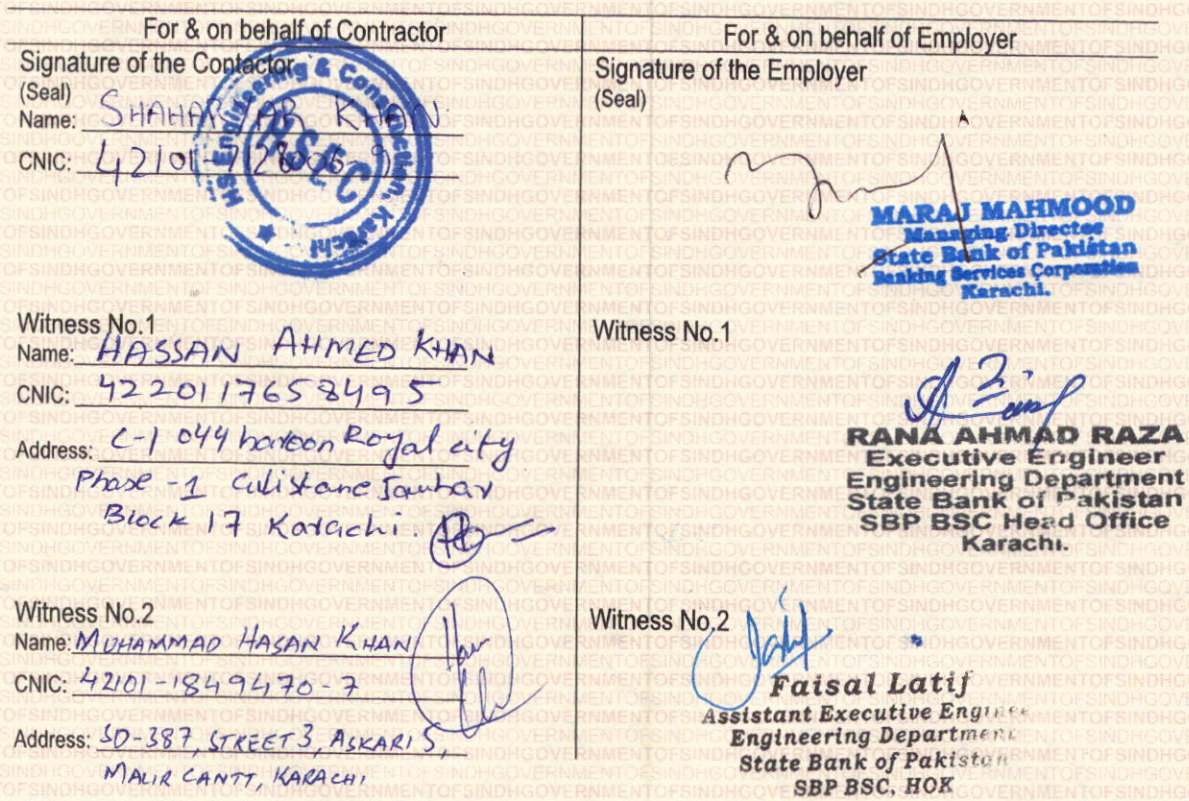 For & on behalf of Contractor
Signature of the Contactor
(Seal)
Name: SHAHARYAR KHAN
CNIC: 42101
HS Engineering & Construction, Karachi
HSEC
Witness No.1
Name: HASSAN AHMED KHAN
CNIC: 4220117658495
Address: C-1 044 haroon Royal city
Phase -1 Gulistane Jauhar
Block 17 Karachi.
Witness No.2
Name: MUHAMMAD HASAN KHAN
CNIC: 42101-1849470-7
Address: SD-387, STREET 5, ASKARI 5,
MALIR CANTT, KARACHI
For & on behalf of Employer
Signature of the Employer
(Seal)
MARAJ MAHMOOD
Managing Director
State Bank of Pakistan
Banking Services Corporation
Karachi.
Witness No.1
RANA AHMAD RAZA
Executive Engineer
Engineering Department
State Bank of Pakistan
SBP BSC Head Office
Karachi.
Witness No.2
Faisal Latif
Assistant Executive Engineer
Engineering Department
State Bank of Pakistan
SBP BSC, HOK